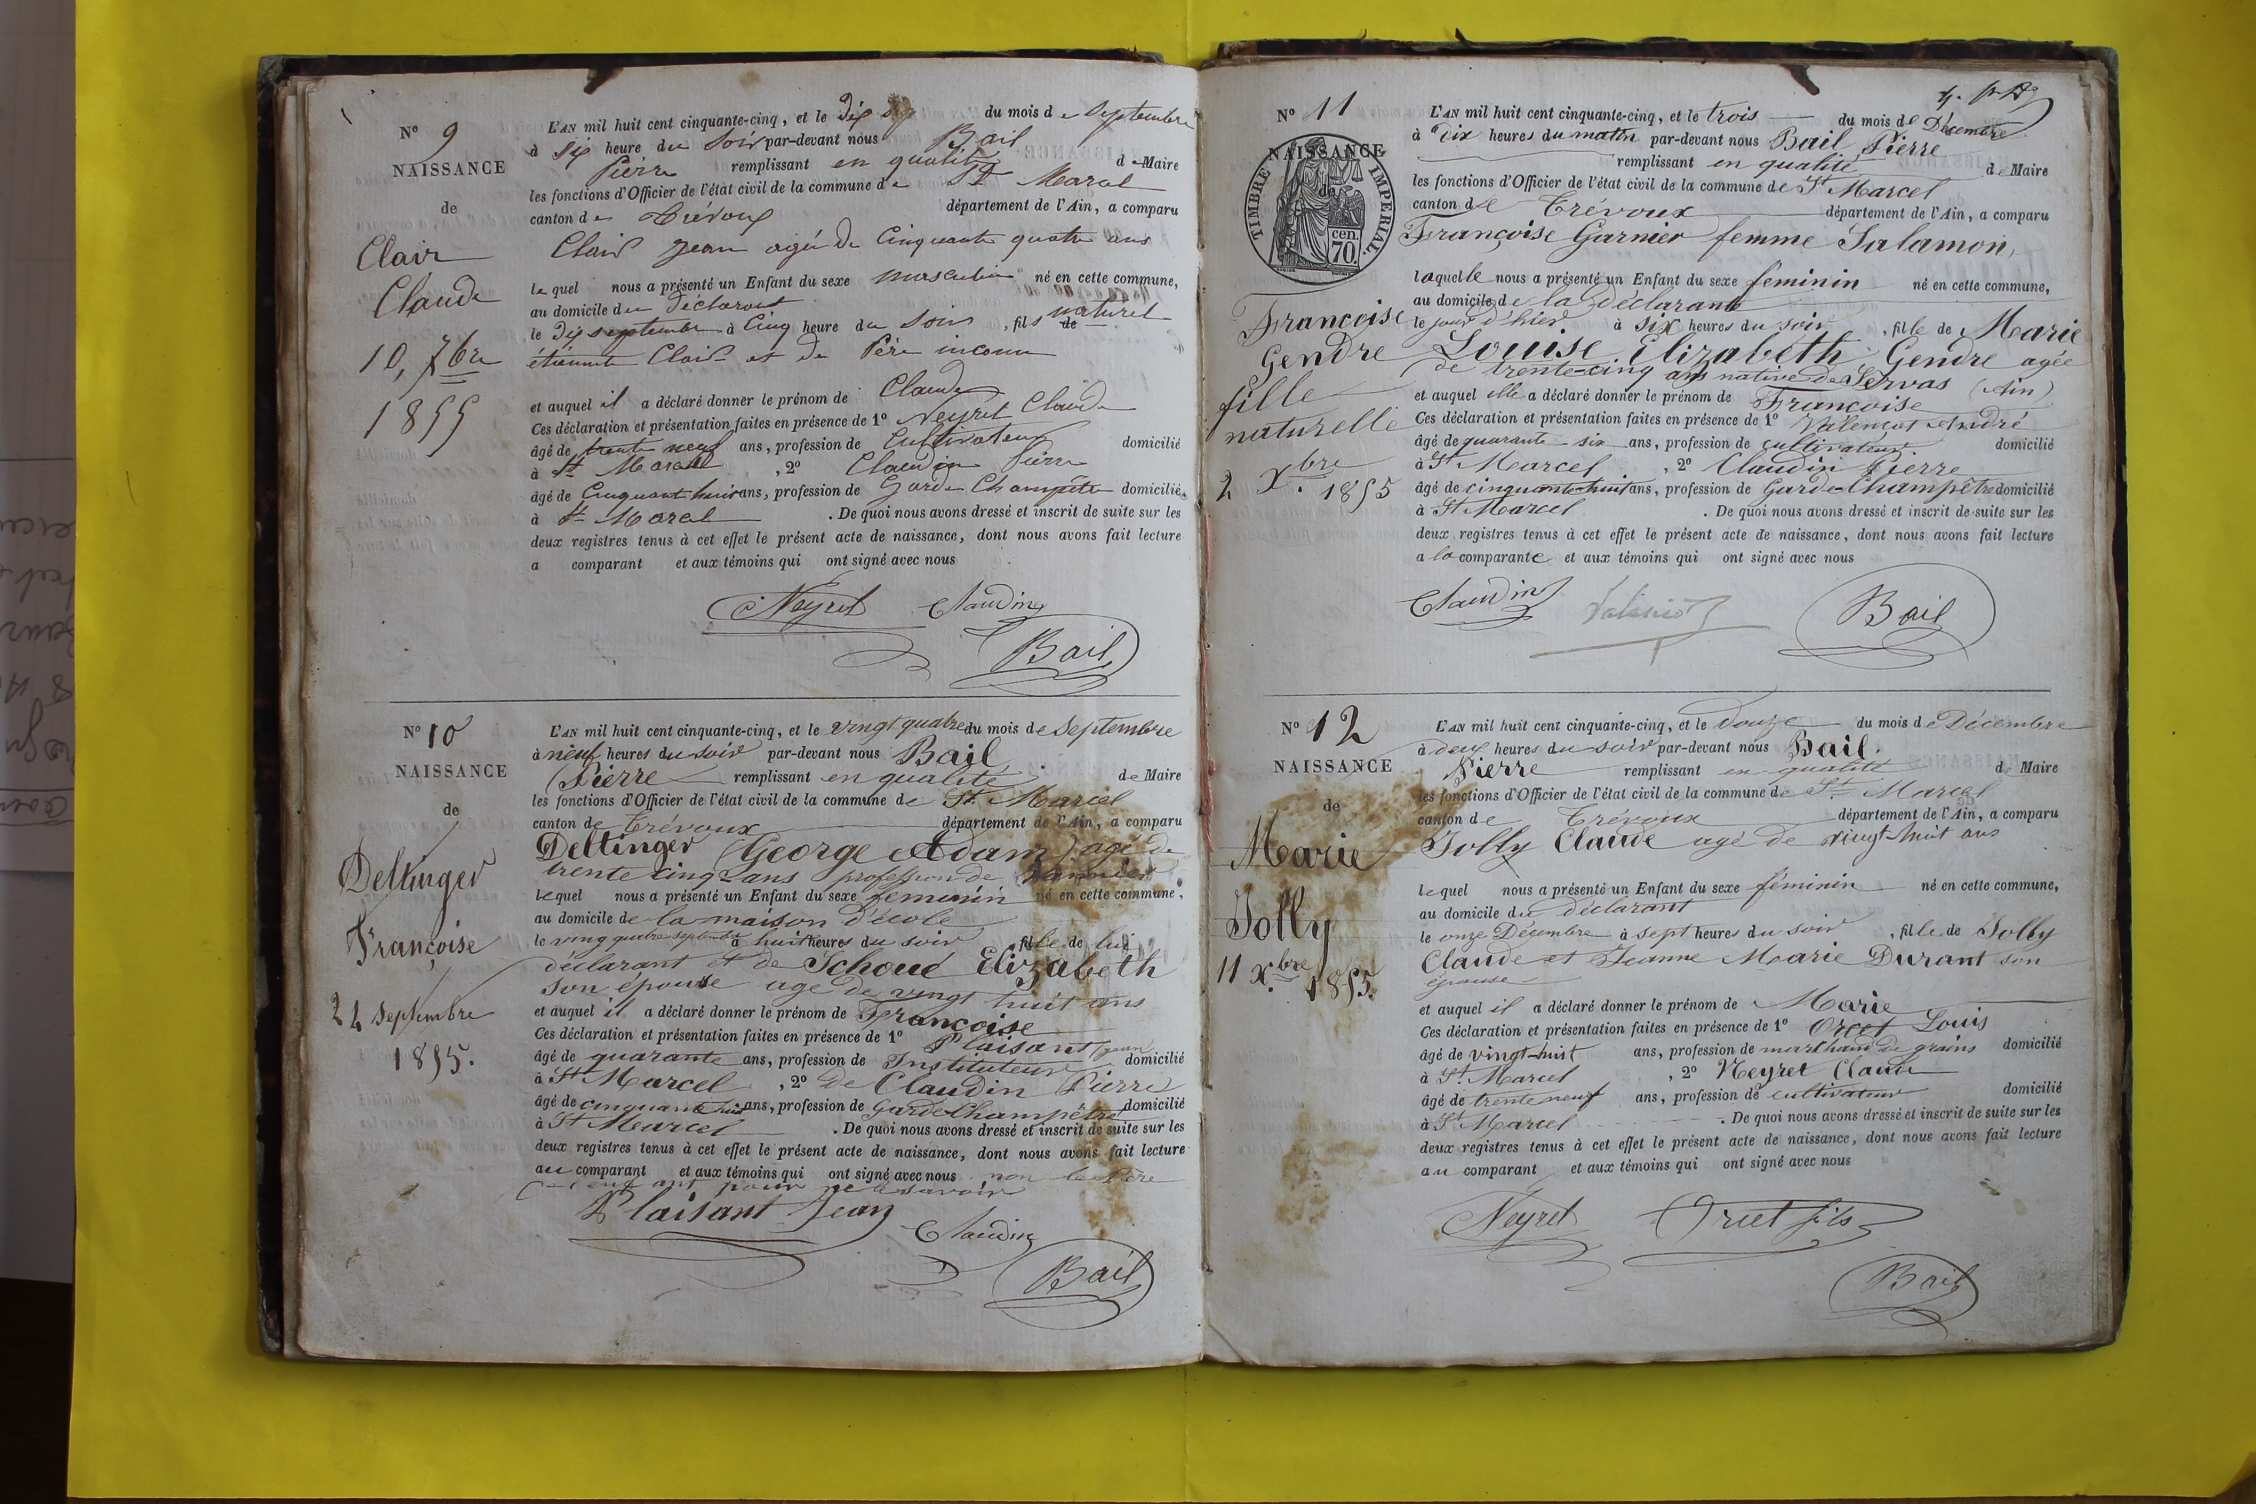 N° 9
NAISSANCE
de
Clair
Claude
10, 7bre
1855
L'AN mil huit cent cinquante-cinq, et le Dix du mois de Septembre
à six heure du soir par-devant nous Bail
Pierre remplissant en qualité de Maire
les fonctions d'Officier de l'état civil de la commune de St Marcel
canton de Trévoux département de l'Ain, a comparu
Clair Jean agé de Cinquante quatre ans
lequel nous a présenté un Enfant du sexe masculin né en cette commune,
au domicile du déclarant
le dix septembre à Cinq heure du Soir, fils naturel de
étiennette Clair et de Père inconnu
et auquel il a déclaré donner le prénom de Claude
Ces déclaration et présentation faites en présence de 1° Neyret Claude
âgé de trente neuf ans, profession de Cultivateur domicilié
à St Marcel, 2° Claudin Pierre
âgé de Cinquant huit ans, profession de Garde Champêtre domicilié
à St Marcel. De quoi nous avons dressé et inscrit de suite sur les
deux registres tenus à cet effet le présent acte de naissance, dont nous avons fait lecture
a comparant et aux témoins qui ont signé avec nous
Neyret Claudin
Bail
N° 10
NAISSANCE
de
Deltinger
Françoise
24 septembre
1855.
L'AN mil huit cent cinquante-cinq, et le vingt quatre du mois de Septembre
à neuf heures du soir par-devant nous Bail
Pierre remplissant en qualité de Maire
les fonctions d'Officier de l'état civil de la commune de St Marcel
canton de Trévoux département de l'Ain, a comparu
Deltinger George Adam agé de
trente cinq ans profession de
lequel nous a présenté un Enfant du sexe feminin né en cette commune,
au domicile de la maison d'école
le ving quatre septembre à huit heures du soir fille de lui
déclarant et de Schoué Elizabeth
son épouse age de vingt huit ans
et auquel il a déclaré donner le prénom de Françoise
Ces déclaration et présentation faites en présence de 1° Plaisant Jean
âgé de quarante ans, profession de Instituteur domicilié
à St Marcel, 2° de Claudin Pierre
âgé de cinquante huit ans, profession de Garde Champêtre domicilié
à St Marcel. De quoi nous avons dressé et inscrit de suite sur les
deux registres tenus à cet effet le présent acte de naissance, dont nous avons fait lecture
au comparant et aux témoins qui ont signé avec nous non le Père
de l'enfant pour ne le savoir
Plaisant Jean
Claudin
Bail
N° 11
NAISSANCE
de
TIMBRE IMPERIAL.
cen.
70.
Françoise
Gendre
fille
naturelle
2 Xbre 1855
L'AN mil huit cent cinquante-cinq, et le trois du mois de Décembre
à dix heures du matin par-devant nous Bail Pierre
remplissant en qualité de Maire
les fonctions d'Officier de l'état civil de la commune de St Marcel
canton de Trévoux département de l'Ain, a comparu
Françoise Garnier femme Salamon,
laquelle nous a présenté un Enfant du sexe féminin né en cette commune,
au domicile de la déclarante
le jour d'hier à six heures du soir, fille de Marie
Louise Elizabeth Gendre agée
de trente-cinq ans native de Servas (Ain)
et auquel elle a déclaré donner le prénom de Françoise
Ces déclaration et présentation faites en présence de 1° Valençot André
âgé de quarante-six ans, profession de cultivateur domicilié
à St Marcel, 2° Claudin Pierre
âgé de cinquante-huit ans, profession de Garde-Champêtre domicilié
à St Marcel. De quoi nous avons dressé et inscrit de suite sur les
deux registres tenus à cet effet le présent acte de naissance, dont nous avons fait lecture
a la comparante et aux témoins qui ont signé avec nous
Claudin Valençot Bail
N° 12
NAISSANCE
de
Marie
Jolly
11 Xbre 1855.
L'AN mil huit cent cinquante-cinq, et le douze du mois de Décembre
à deux heures du soir par-devant nous Bail.
Pierre remplissant en qualité de Maire
les fonctions d'Officier de l'état civil de la commune de St Marcel
canton de Trévoux département de l'Ain, a comparu
Jolly Claude agé de vingt huit ans
lequel nous a présenté un Enfant du sexe féminin né en cette commune,
au domicile du déclarant
le onze Décembre à sept heures du soir, fille de Jolly
Claude et Jeanne Marie Durant son
épouse
et auquel il a déclaré donner le prénom de Marie
Ces déclaration et présentation faites en présence de 1° Orcet Louis
âgé de vingt-huit ans, profession de marchand de grains domicilié
à St Marcel, 2° Neyret Claude
âgé de trente neuf ans, profession de cultivateur domicilié
à St Marcel. De quoi nous avons dressé et inscrit de suite sur les
deux registres tenus à cet effet le présent acte de naissance, dont nous avons fait lecture
au comparant et aux témoins qui ont signé avec nous
Neyret Orcet fils
Bail